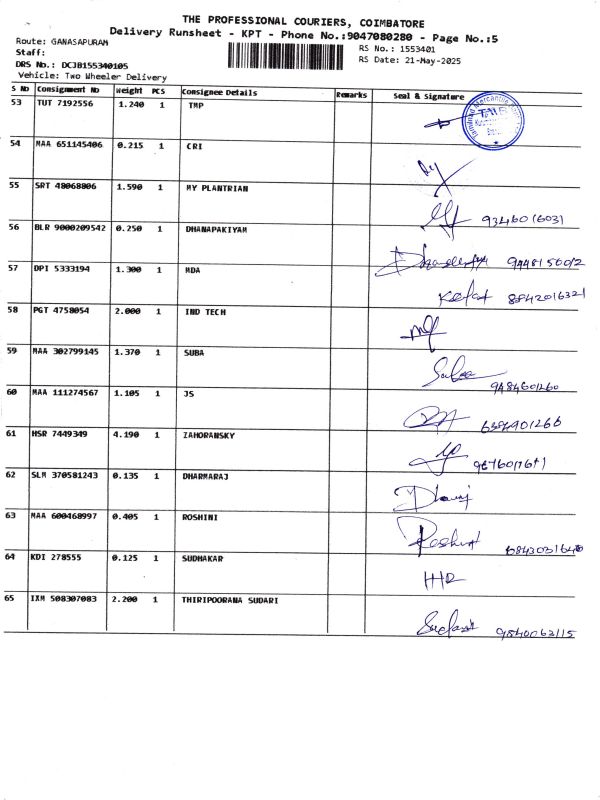 THE PROFESSIONAL COURIERS, COIMBATORE
Delivery Runsheet - KPT - Phone No.:9047080280 - Page No.:5
Route: GANASAPURAM
RS No.: 1553401
Staff:
RS Date: 21-May-2025
DRS No.: DCJB155340105
Vehicle: Two Wheeler Delivery
S No Consignment No Weight PCS Consignee Details Remarks Seal & Signature
53 TUT 7192556 1.240 1 TMP
54 MAA 651145406 0.215 1 CRI
55 SRT 48068806 1.590 1 MY PLANTRIAN
9346016031
56 BLR 9000209542 0.250 1 DHANAPAKIYAM
57 DPI 5333194 1.300 1 MDA
8842016321
58 PGT 4758054 2.000 1 IND TECH
59 MAA 302799145 1.370 1 SUBA
9484601260
60 MAA 111274567 1.105 1 JS
61 HSR 7449349 4.190 1 ZAHORANSKY
62 SLM 370581243 0.135 1 DHARMARAJ
63 MAA 600468997 0.405 1 ROSHINI
64 KDI 278555 0.125 1 SUDHAKAR
65 IXM 508307083 2.200 1 THIRIPOORANA SUDARI
9840063115